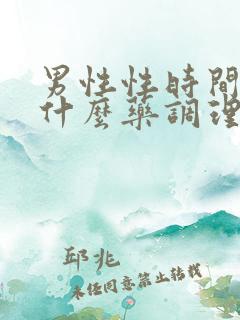 男性性時間
什麼藥調理
邱兆
未任同意禁止转载